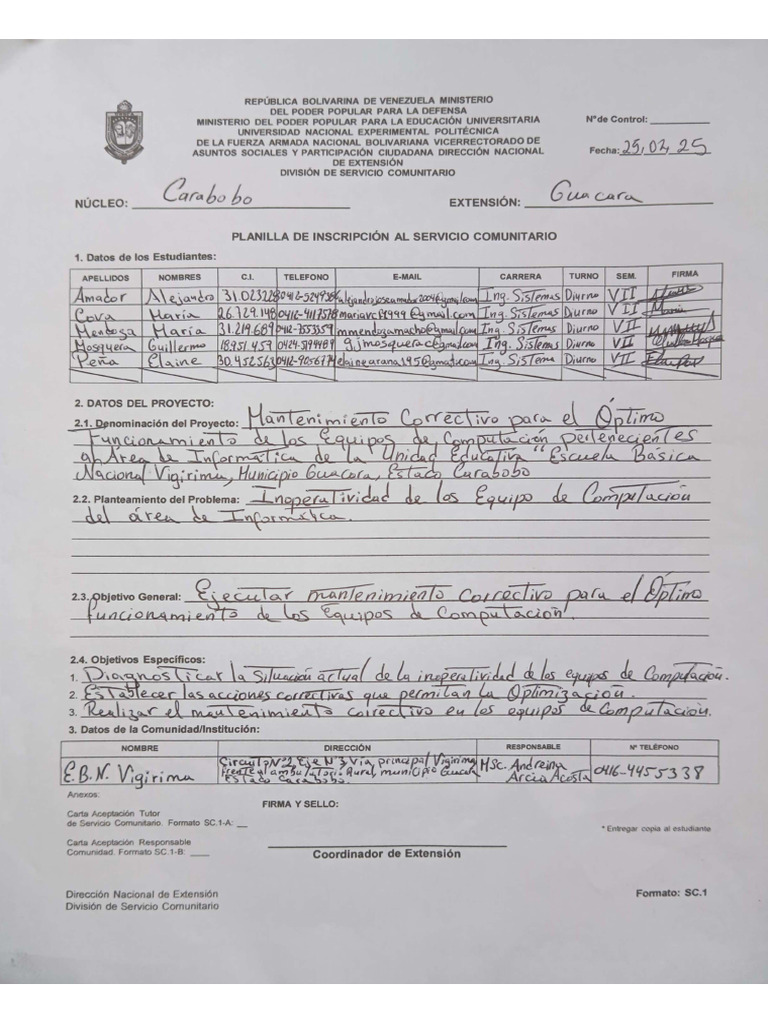 REPÚBLICA BOLIVARINA DE VENEZUELA MINISTERIO
DEL PODER POPULAR PARA LA DEFENSA
MINISTERIO DEL PODER POPULAR PARA LA EDUCACIÓN UNIVERSITARIA
UNIVERSIDAD NACIONAL EXPERIMENTAL POLITÉCNICA
DE LA FUERZA ARMADA NACIONAL BOLIVARIANA VICERRECTORADO DE
ASUNTOS SOCIALES Y PARTICIPACIÓN CIUDADANA DIRECCIÓN NACIONAL
DE EXTENSIÓN
DIVISIÓN DE SERVICIO COMUNITARIO
N°de Control:
Fecha: 25,02,25
NÚCLEO: Carabobo EXTENSIÓN: Guacara
PLANILLA DE INSCRIPCIÓN AL SERVICIO COMUNITARIO
1. Datos de los Estudiantes:
APELLIDOS NOMBRES C.I. TELEFONO E-MAIL CARRERA TURNO SEM. FIRMA
Amador Alejandro 31.023228 0412-5249386 alejandrojoseamador2004@gmail.com Ing. Sistemas Diurno VII
Cova María 26.729.148 0416-9417578 mariavcf1999@gmail.com Ing. Sistemas Diurno VII
Mendoza María 31.219.689 0412-7553359 mmendozamacho@gmail.com Ing. Sistemas Diurno VII
Mosquera Guillermo 18.951.459 0424-5194489 gjmosquerac@gmail.com Ing. Sistemas Diurno VII
Peña Elaine 30.452563 0412-9056774 elainearana195@gmail.com Ing. Sistema Diurno VII
2. DATOS DEL PROYECTO:
2.1. Denominación del Proyecto: Mantenimiento Correctivo para el Óptimo
Funcionamiento de los Equipos de Computación pertenecientes
al Área de Informática de la Unidad Educativa "Escuela Básica
Nacional Vigirima, Municipio Guacara, Estado Carabobo
2.2. Planteamiento del Problema: Inoperatividad de los Equipo de Computación
del área de Informática.
2.3. Objetivo General: Ejecutar mantenimiento correctivo para el Óptimo
funcionamiento de los Equipos de Computación.
2.4. Objetivos Específicos:
1. Diagnosticar la Situación actual de la inoperatividad de los equipos de Computación.
2. Establecer las acciones correctivas que permitan la Optimización.
3. Realizar el mantenimiento correctivo en los equipos de Computación.
3. Datos de la Comunidad/Institución:
NOMBRE DIRECCIÓN RESPONSABLE N° TELÉFONO
E.B.N. Vigirima Circuito N°2, Eje N°3 Vía principal Vigirima MSc. Andreina 0416-4455338
Frente al ambulatorio Rural, municipio Guacara Arcia Acosta
Estado Carabobo.
Anexos:
FIRMA Y SELLO:
Carta Aceptación Tutor
de Servicio Comunitario. Formato SC.1-A:
* Entregar copia al estudiante
Carta Aceptación Responsable
Comunidad. Formato SC.1-B:
Coordinador de Extensión
Dirección Nacional de Extensión
División de Servicio Comunitario
Formato: SC.1